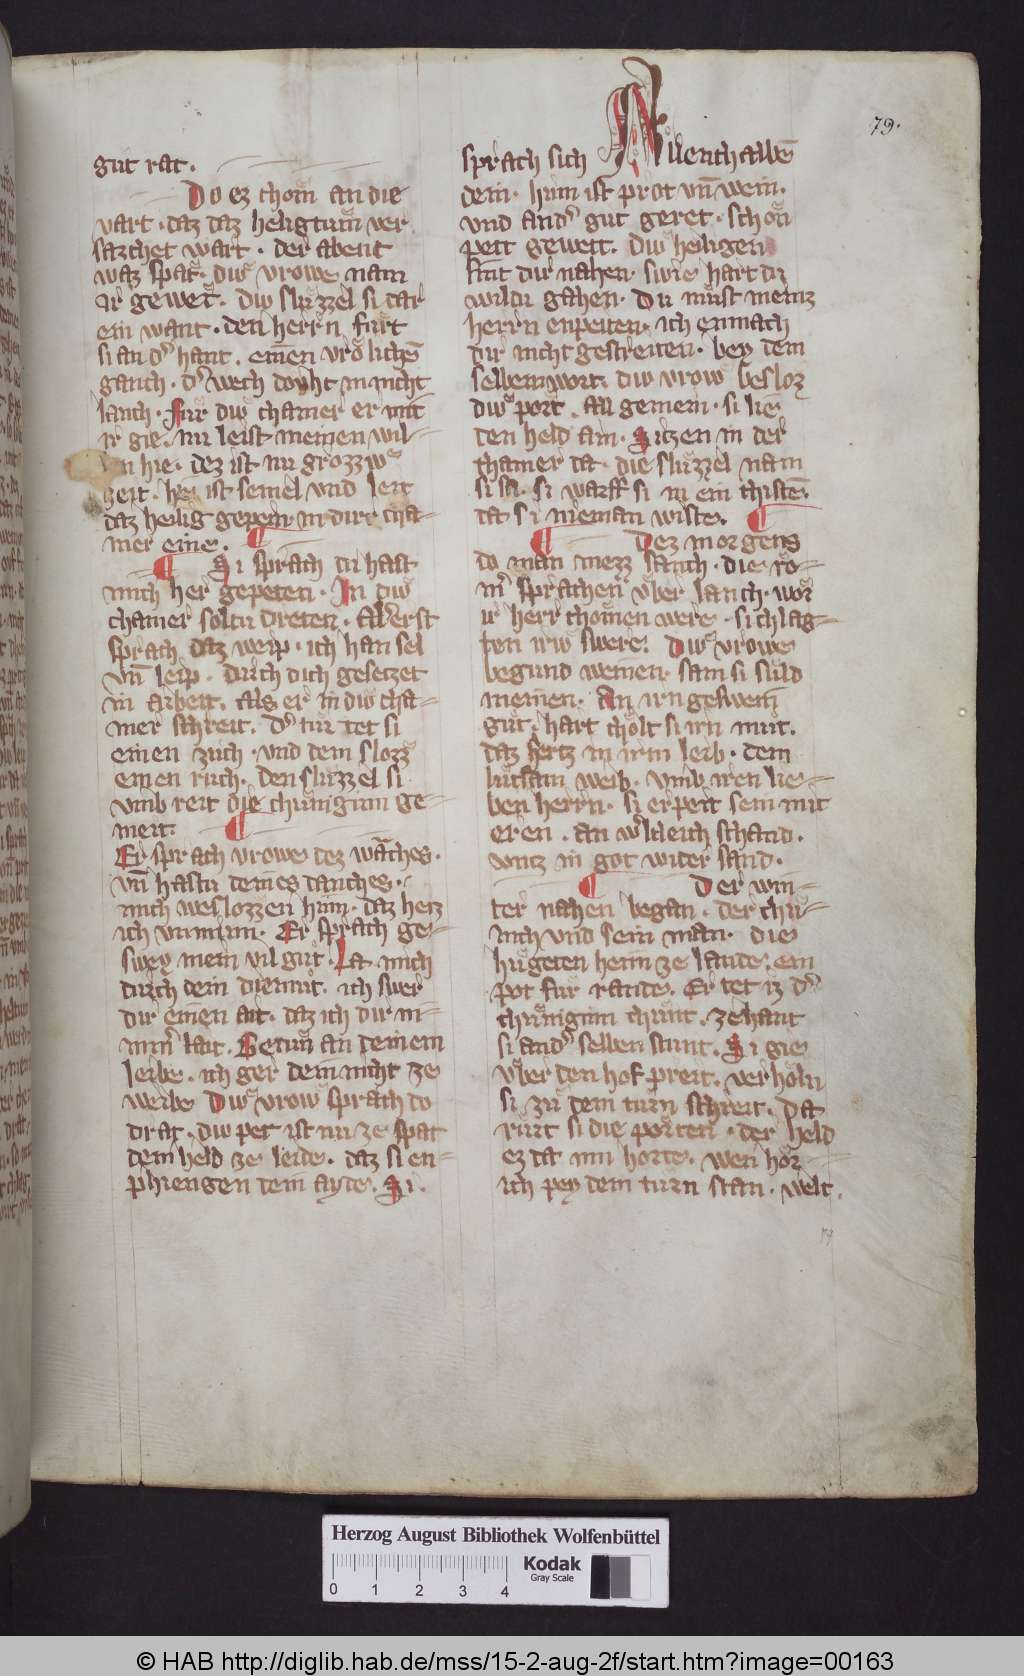 79.
gut rat.
Do ez chom an die
vart. daz daz heiligtum ver
sazchet wart. der abent
waz spat. diw vrowe nam
ir gewet. diw sluzzel si dar
ein want. den herrn furt
si an dˢ hant. einen vrolichē
ganch. dˢ wech douht in nicht
lanch. Fur diw chamer er mit
ir gie. nu leist meinen wil-
hie. dez ist nu grozziw
zeit. hie ist semel vnd leit
daz heilig gepein. in dirr cha-
mer eine.
Si sprach du hast
mich her gepeten. In diw
chamer soltu dreten. Alrerst
sprach daz weip. ich han sel
vn̄ leip. durch dich gesetzet
in arbeit. Als er in diw cha-
mer schreit. Dˢ tur tet si
einen zuch. vnd dem slozz
einen ruch. den sluzzel si
vmb reit die chuniginn ge-
meit.
Er sprach vrowe dez waches.
vn̄ hastu deines danches.
mich weslozzen hinn. daz herz
ich vnminn. Er sprach ge-
swey mein vil gut. La mich
durch dein diemut. ich swer
dir einen ait. daz ich dir ni-
mmˢ lait. Getun an deinem
leibe. ich ger dein nicht ze
weibe Diw vrow sprach do
drat. diw pet ist nu ze spat
dem held ze leide. daz si en-
phiengen dein ayde. Si.
sprach sich Allenthalbē
dein. hinn ist prot vn̄ wein.
vnd andˢ gut geret. schon
pett gewett. Diw heiligen
sint dir nahen. swie hart dv
wildu gahen. Du must meinz
herrn enpeiten. ich enmach
dir nicht gestreiten. bey dem
selben wort. diw vrow besloz
diw port. All gemein. si lie
den held ain. Sitzen in der
chamer da. die sluzzel nam
si sa. si warff si in ein chistē.
da si nieman wiste.
Dez morgens
do man mezz sanch. die ro-
mˢ sprachen vber lanch. wor
ir herr chomen were. si chlag-
ten irw swere. Diw vrowe
begund weinen. sam si suld
meinen. An irn geswein
gut. hart cholt si irn mut.
daz hertz in irm leib. dem
lusam weib. vmb iren lie-
ben herrn. si erpeit sein mit
eren. an wˢltleich schand.
vntz in got wider sand.
Der win-
ter nahen began. der chu-
nich vnd sein man. die
hugeten heim ze lande. ein
pot fur rande. Er tet iz dˢ
chuniginn chunt. zehant
si andˢ selben stunt. Si gie
vber den hof preit. verholn
si zu dem turn schreit. Da
rurt si die porten. der held
ez da inn horte. wen hor
ich pey dem turn stan. welt.
79
Herzog August Bibliothek Wolfenbüttel
Kodak
Gray Scale
0 1 2 3 4
© HAB http://diglib.hab.de/mss/15-2-aug-2f/start.htm?image=00163